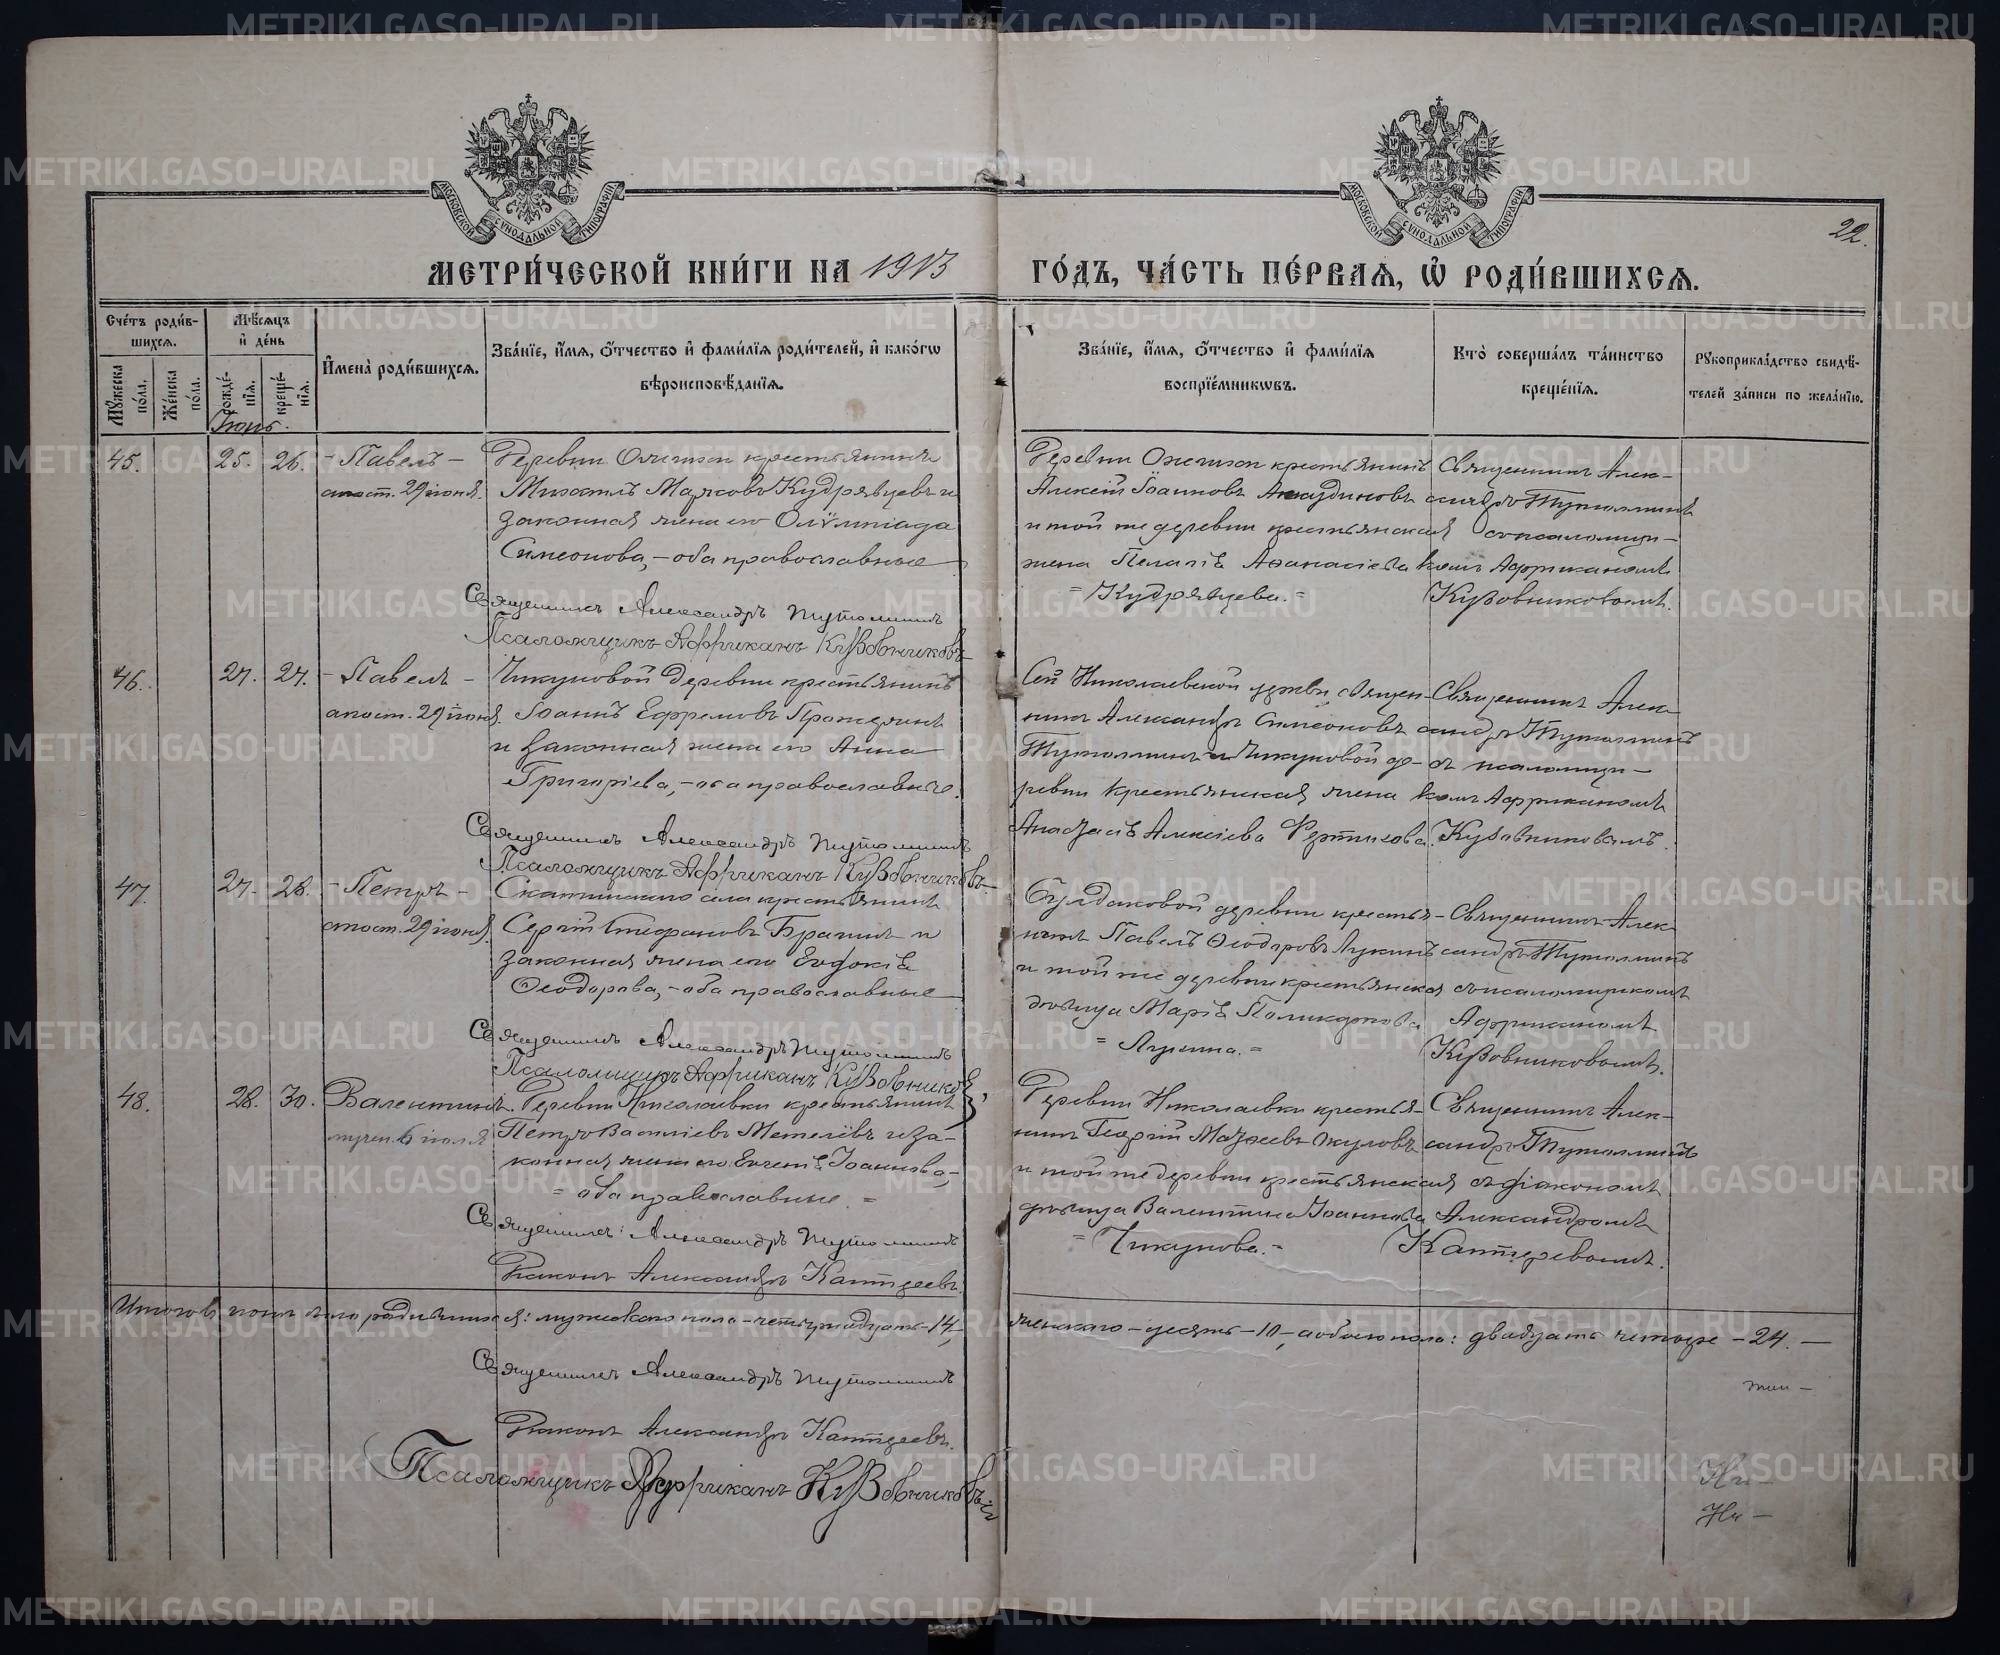 МОСКОВСКОЙ СѴНОДАЛЬНОЙ ТИПОГРАФІИ
МОСКОВСКОЙ СѴНОДАЛЬНОЙ ТИПОГРАФІИ
22.
МЕТРИ́ЧЕСКОЙ КНИ́ГИ НА 1913 ГО́ДЪ, ЧА́СТЬ ПЕ́РВАѦ, Ѽ РОДИ́ВШИХСѦ.
Сче́тъ роди́в-
шихсѧ.
Мꙋ́жеска по́ла.
Же́нска по́ла.
Мѣ́сѧцъ и҆ де́нь
рожде́нїѧ.
креще́нїѧ.
И҆мена̀ роди́вшихсѧ.
Зва́нїе, и҆́мѧ, ѻ҆́тчество и҆ фами́лїѧ роди́телей, и҆ како́гѡ
вѣроисповѣ́данїѧ.
Зва́нїе, и҆́мѧ, ѻ҆́тчество и҆ фами́лїѧ
воспрїе́мникѡвъ.
Кто̀ соверша́лъ та́инство
креще́нїѧ.
Рꙋкоприкла́дство свидѣ́-
телей за́писи по жела́нїю.
Іюнь.
45. 25. 26. - Павелъ -
апост. 29 іюня.
Деревни крестьянинъ
Михаилъ Марковъ Кудрявцевъ и
законная жена его Олѵмпіада
Симеонова, - оба православные
Священникъ Александръ Тутолминъ
Псаломщикъ Африканъ Кузовниковъ
Деревни крестьянинъ
Алексій Іоанновъ Акудиновъ
и той же деревни крестьянская
жена Пелагія Аѳанасіева
= Кудрявцева. =
Священникъ Алек-
сандръ Тутолминъ
съ псаломщи-
комъ Африканомъ
Кузовниковымъ.
46. 27. 27. - Павелъ -
апост. 29 іюня.
Чикуновой деревни крестьянинъ
Іоаннъ Ефремовъ
и законная жена его Анна
Григоріева, - оба православные.
Священникъ Александръ Тутолминъ
Псаломщикъ Африканъ Кузовниковъ
Сей Николаевской церкви священ-
никъ Александръ Симеоновъ
Тутолминъ и Чикуновой де-
ревни крестьянская жена
Анастасія Алексіева
Священникъ Алек-
сандръ Тутолминъ
съ псаломщи-
комъ Африканомъ
Кузовниковымъ.
47. 27. 28. - Петръ -
апост. 29 іюня.
Скатинскаго села крестьянинъ
Сергій Стефановъ Брагинъ и
законная жена его Евдокія
Ѳеодорова, - оба православные
Священникъ Александръ Тутолминъ
Псаломщикъ Африканъ Кузовниковъ
Булдаковой деревни крестья-
нинъ Павелъ Ѳеодоровъ Лукинъ
и той же деревни крестьянская
дѣвица Марія Поликарпова
= Лукина. =
Священникъ Алек-
сандръ Тутолминъ
съ псаломщикомъ
Африканомъ
Кузовниковымъ.
48. 28. 30. Валентинъ.
мучен. 6 іюля
Деревни Николаевки крестьянинъ
Петръ Василіевъ Метелёвъ и за-
конная жена его Евгенія Іоаннова,-
= оба православные. =
Священникъ Александръ Тутолминъ
Діаконъ Александръ
Деревни Николаевки крестья-
нинъ Георгій Матѳеевъ
и той же деревни крестьянская
дѣвица Валентина Іоаннова
= Чикунова. =
Священникъ Алек-
сандръ Тутолминъ
съ діакономъ
Александромъ
Итого въ іюнѣ было родившихся: мужескаго пола - четырнадцать - 14, женскаго - десять - 10, а обоего пола: двадцать четыре - 24. -
Священникъ Александръ Тутолминъ
Діаконъ Александръ
Псаломщикъ Африканъ Кузовниковъ
METRIKI.GASO-URAL.RU